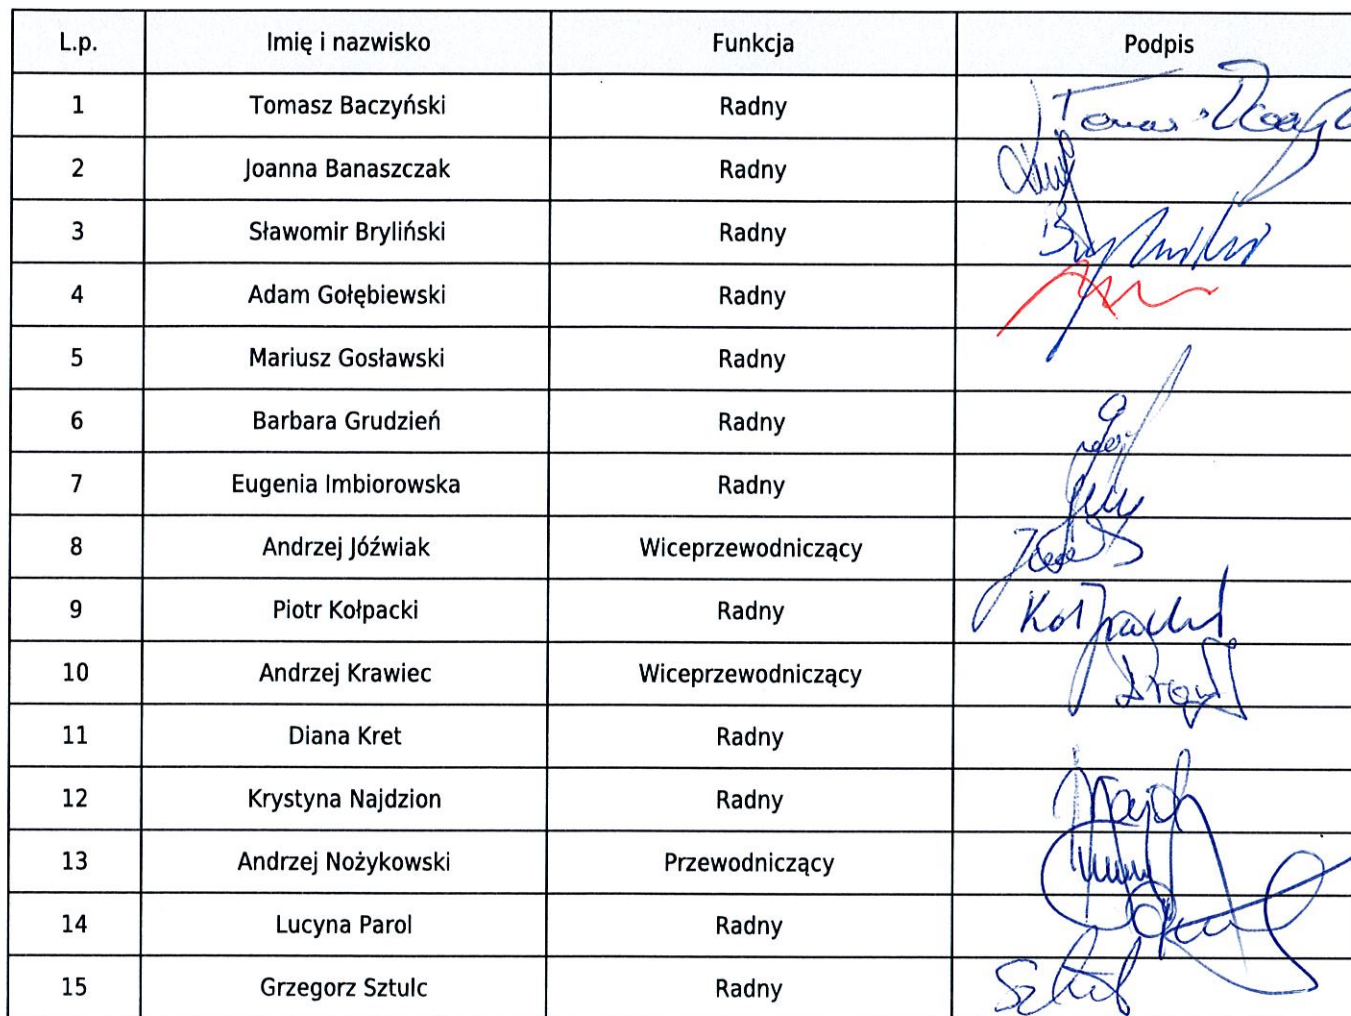 L.p. Imię i nazwisko Funkcja Podpis
1 Tomasz Baczyński Radny Tomasz
2 Joanna Banaszczak Radny
3 Sławomir Bryliński Radny Bryliński
4 Adam Gołębiewski Radny
5 Mariusz Gosławski Radny
6 Barbara Grudzień Radny
7 Eugenia Imbiorowska Radny
8 Andrzej Jóźwiak Wiceprzewodniczący
9 Piotr Kołpacki Radny Kołpacki
10 Andrzej Krawiec Wiceprzewodniczący
11 Diana Kret Radny
12 Krystyna Najdzion Radny
13 Andrzej Nożykowski Przewodniczący
14 Lucyna Parol Radny
15 Grzegorz Sztulc Radny